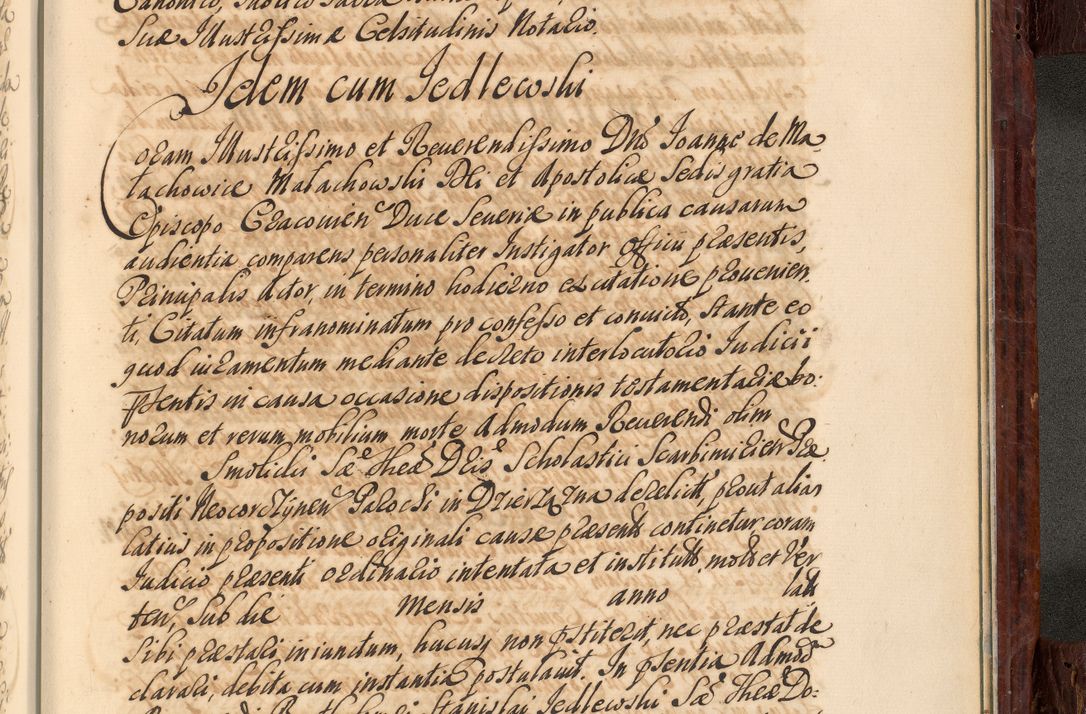 Suæ Illustrissimæ Celsitudinis Notario.
Idem cum Jedlewski
Coram Illustrissimo et Reuerendissimo Dno Joanne de Ma
łachowice Małachowski Dei et Apostolicæ Sedis gratia
Episcopo Cracouien Duce Seueriæ in publica causarum
audientia comparens personaliter Instigator Officii præsentis,
Principalis Actor, in termino hodierno ex citatione prouenien
ti, Citatum infranominatum pro confesso et conuicto, stante eo
quod iuramentum mediante decreto interlocutorio Iudicii
pntis in causa occasione dispositionis testamentariæ bo:
norum et rerum mobilium morte Admodum Reuerendi olim
Smolidii Sæ Theæ Dris Scholastici Scarbimirien Præ
positi Neocorczynen Parochi in Dzierzązna derelict, prout alias
latius in propositione originali causæ præsenti continetur coram
Iudicio præsenti ordinario intentata et institut, modo et Ver
ten, Sub die mensis anno lati
Sibi præstari iniunctum, hucusq non pstiterit, nec præstat de
clarari, debita cum instantia postulauit. In pntia Admod
Stanislai Jedlewski Sæ Theæ Do: